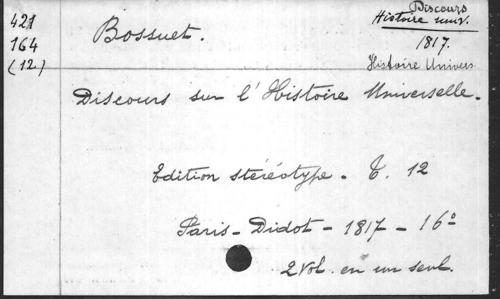 421
164
(12)
Bossuet.
Discours
Histoire univ.
1817.
Histoire Univers
Discours sur l'Histoire Universelle.
Edition stéréotype - T. 12
Paris - Didot - 1817 - 16°
2 Vol. en un seul.